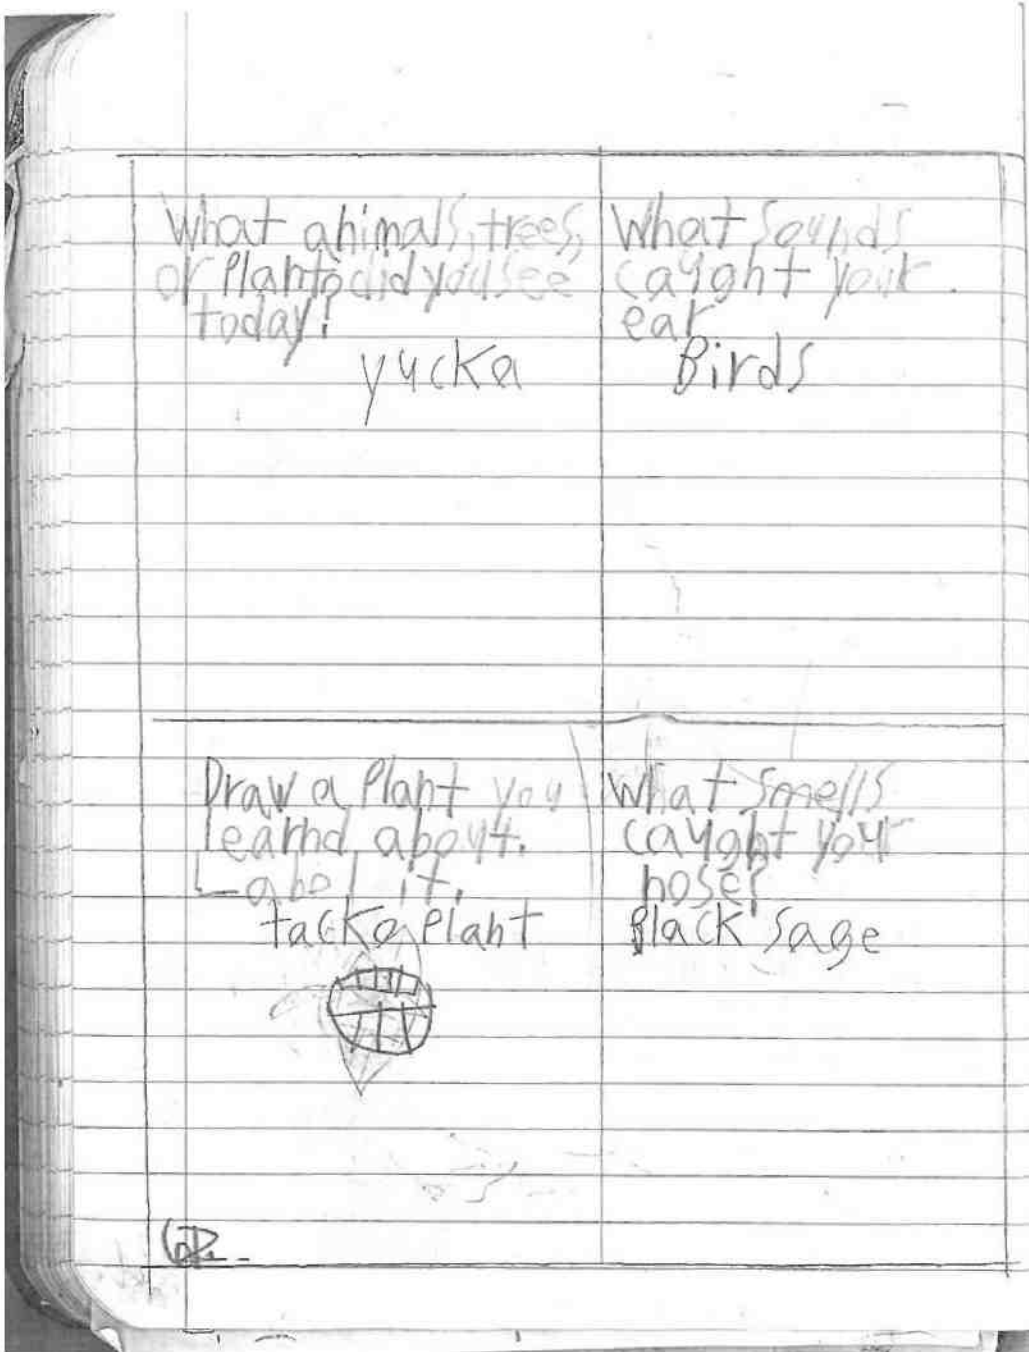 What animals, trees,
or Plants did you see
today?
yucka
What sounds
caught your
ear
Birds
Draw a Plant you
learnd about.
Label it.
tacko Plant
What smells
caught your
nose?
Black sage